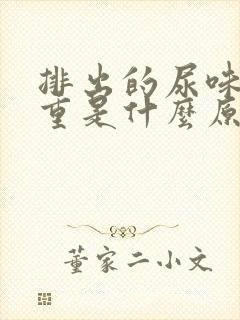 排出的尿味
重是什麼原
董家二小文